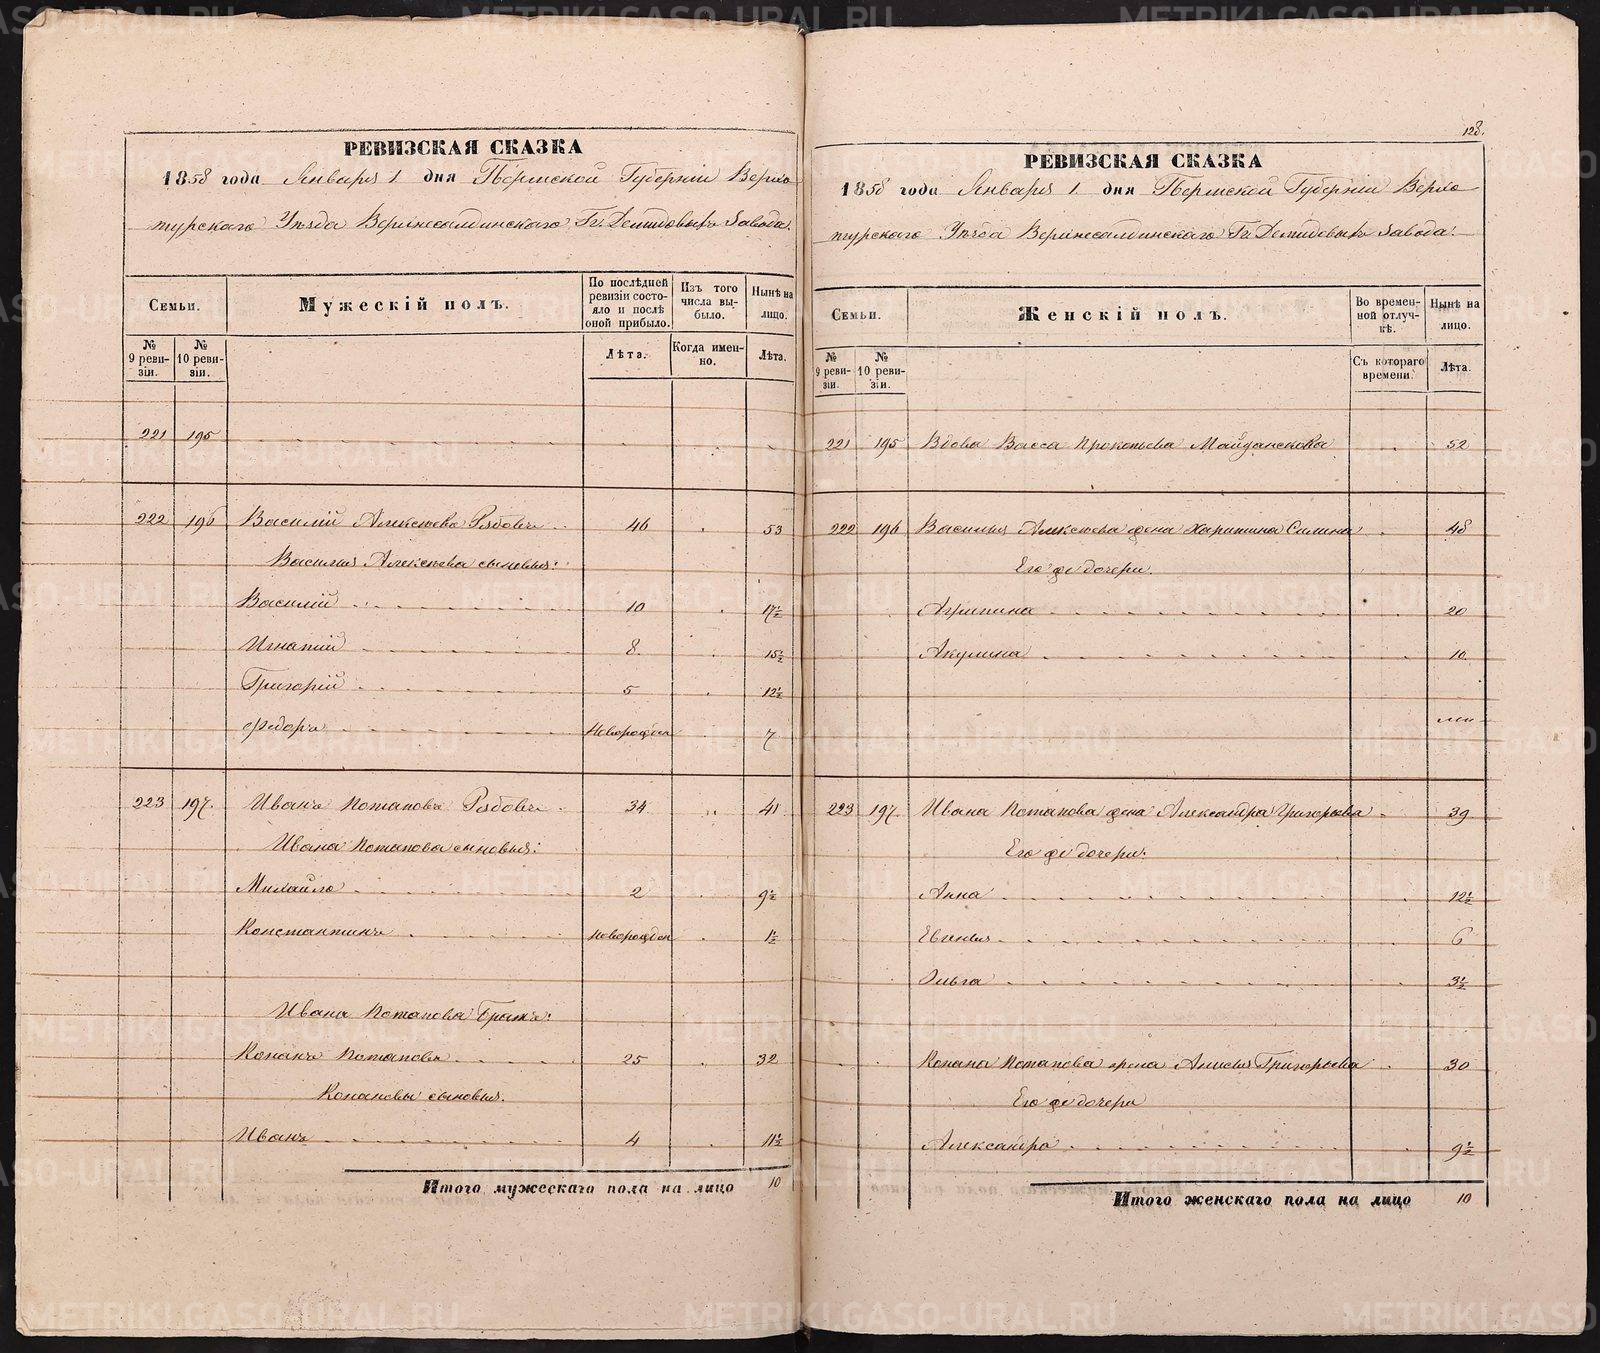 РЕВИЗСКАЯ СКАЗКА
1858 года Января 1 дня Пермской Губерніи Верхо
турскаго Уѣзда Верхнесалдинскаго Гг. Демидовыхъ Завода.
Семьи. Мужескій полъ. По послѣдней ревизіи состояло и послѣ оной прибыло. Изъ того числа выбыло. Нынѣ на лицо.
№ 9 ревизіи. № 10 ревизіи. Лѣта. Когда именно. Лѣта.
221 195
222 196 Василій Алексѣевъ Рябовъ 46 53
Василья Алексѣева сыновья:
Василій 10 17½
Игнатій 8 15½
Григорій 5 12½
Ѳедоръ Новорожден 7
223 197. Иванъ Потаповъ Рябовъ 34 41
Ивана Потапова сыновья:
Михайло 2 9½
Константинъ Новорожден 1½
Ивана Потапова Братъ:
Кононъ Потаповъ 25 32
Кононовы сыновья:
Иванъ 4 11½
Итого мужескаго пола на лицо 10
128.
РЕВИЗСКАЯ СКАЗКА
1858 года Января 1 дня Пермской Губерніи Верхо
турскаго Уѣзда Верхнесалдинскаго Гг. Демидовыхъ Завода.
Семьи. Женскій полъ. Во временной отлучкѣ. Нынѣ на лицо.
№ 9 ревизіи. № 10 ревизіи. Съ котораго времени. Лѣта.
221 195 Вдова Васса Прокопьева Майданскова 52
222 196 Василья Алексѣева жена Харитина Силина 48
Его же дочери.
Агрипина 20
Акулина 10.
223 197. Ивана Потапова жена Александра Григорьева 39
Его же дочери:
Анна 12½
Евгенья 6
Ольга 3½
Конона Потапова жена Анисья Григорьева 30
Его же дочери
Александра 9½
Итого женскаго пола на лицо 10
METRIKI.GASO-URAL.RU